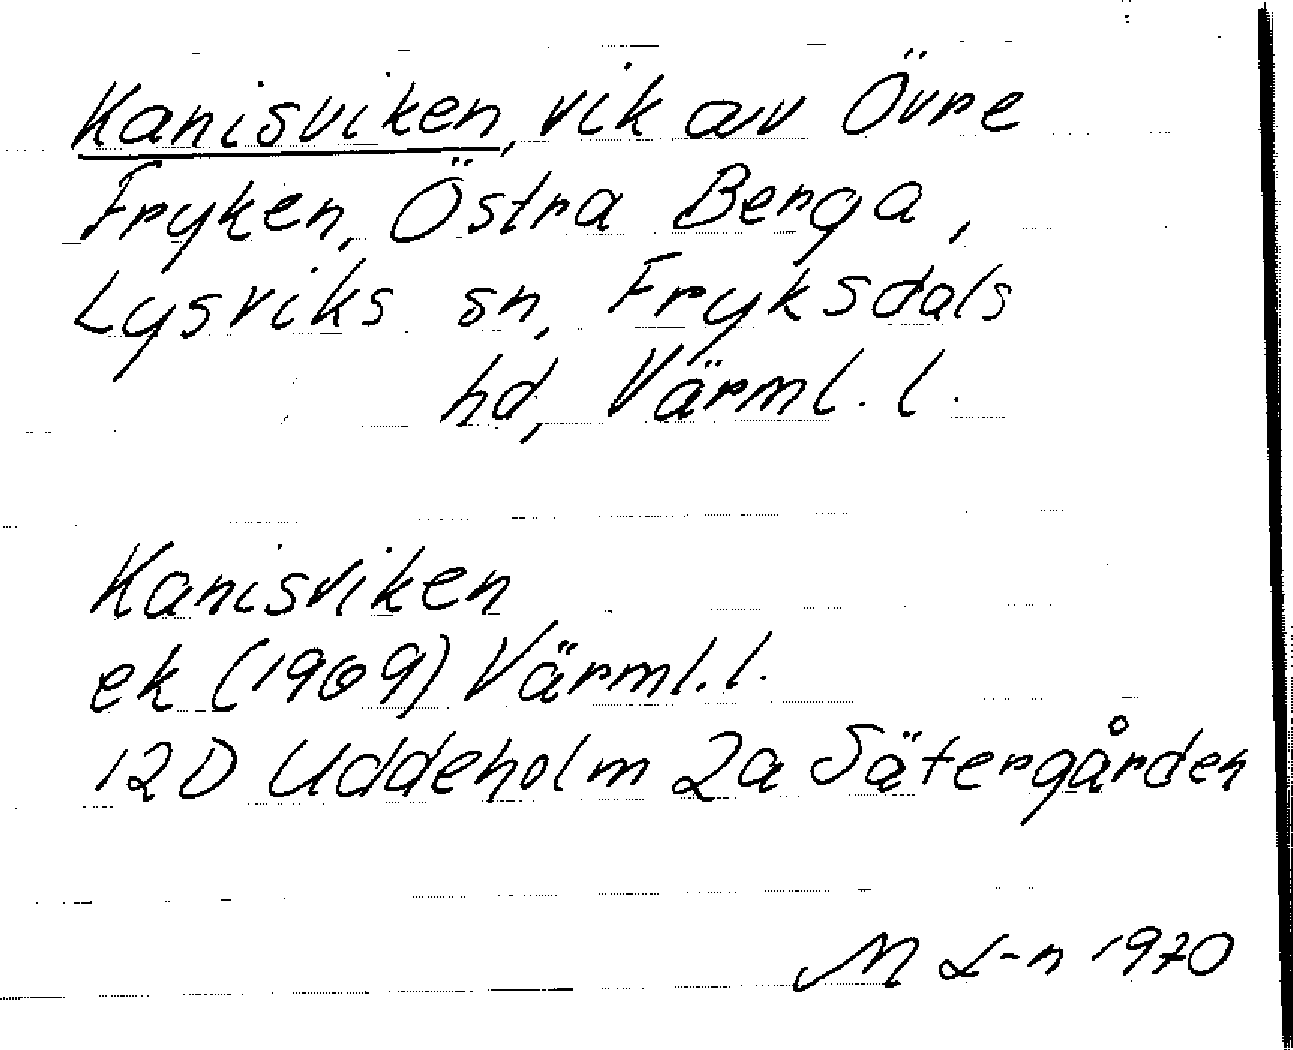 Kanisviken, vik av Övre
Fryken, Östra Berga,
Lysviks sn, Fryksdals
hd, Värml. l.
Kanisviken
ek (1969) Värml. l.
12D Uddeholm 2a Sätergården
M L-n 1970